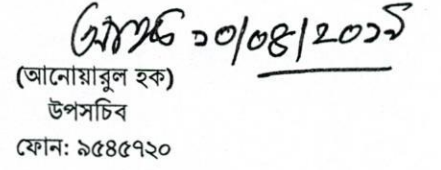 ১০/০৪/২০১৯
(আনোয়ারুল হক)
উপসচিব
ফোন: ৯৫৪৫৭২০